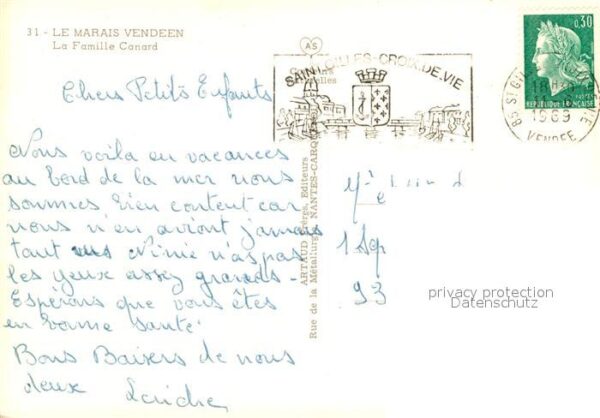 31 - LE MARAIS VENDEEN
La Famille Canard
AS
SAINT GILLES-CROIX-DE-VIE
0,30
REPUBLIQUE FRANÇAISE
18H
1969
VENDEE
Chers Petits Enfants
Nous voila en vacances
au bord de la mer nous
sommes bien content car
nous n'en aviont jamais
tant vus Ninie n'a pas
les yeux assez grands -
Espérons que vous êtes
en bonne santé
Bons Baisers de nous
deux
ARTAUD Frères, Editeurs
Rue de la Métallurgie - NANTES-CARQ
93
privacy protection
Datenschutz